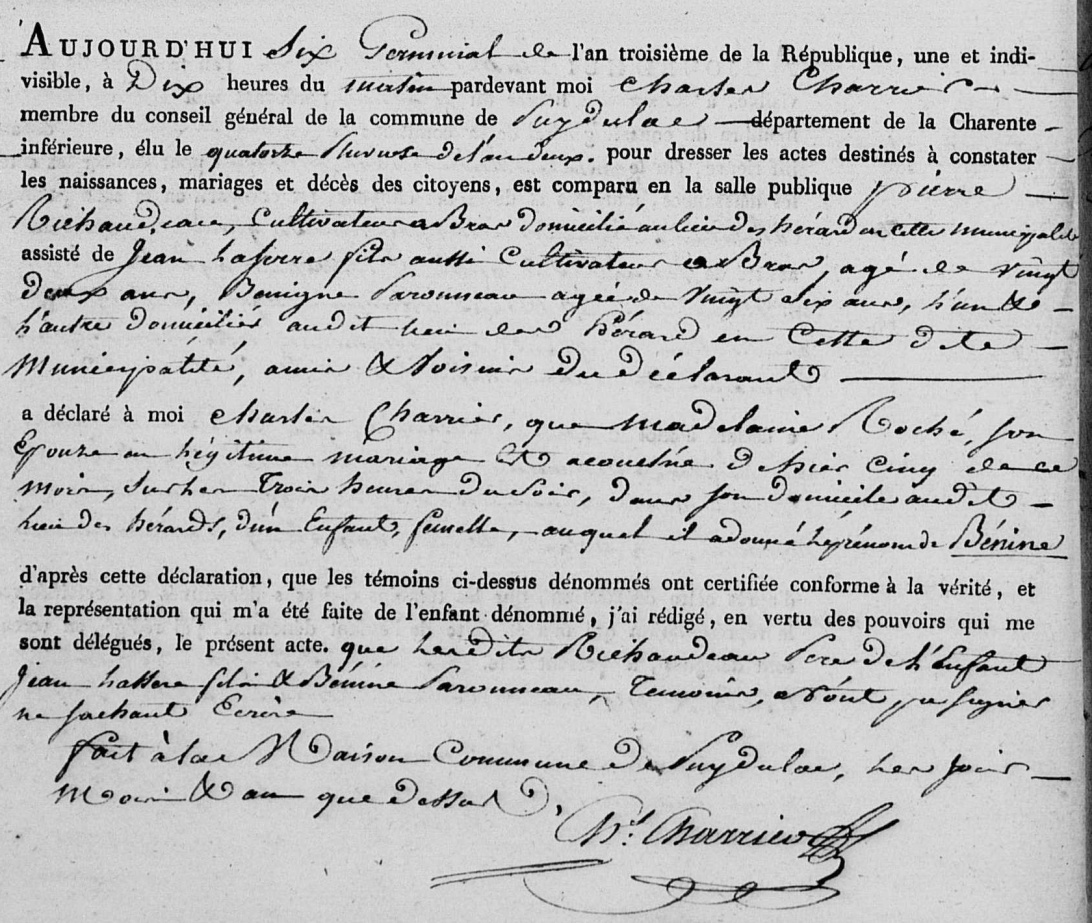 AUJOURD'HUI Six Germinal de l'an troisième de la République, une et indi-
visible, à Dix heures du matin pardevant moi Charles Charrier
membre du conseil général de la commune de Puydulac département de la Charente
inférieure, élu le quatorze Pluviose de l'an deux. pour dresser les actes destinés à constater
les naissances, mariages et décès des citoyens, est comparu en la salle publique pierre
Richaudeau, Cultivateur a Bras domicilié au lieu des hérard en cette municipalité
assisté de Jean Laserre fils aussi Cultivateur a Bras, agé de vingt
deux ans, Benigne Paronneau agée de Vingt Six ans, L'un &
L'autre domiciliés audit lieu des hérard en Cette dite
Municipalité, amis & Voisins du déclarant
a déclaré à moi Charles Charrier, que Madelaine Roché, son
Epouze en Légitime mariage est acouchée d'hier cinq de ce
mois, sur les Trois heures du soir, dans son domicile audit
lieu des hérards, d'un Enfant, femelle, auquel il a donné le prénom de Bénine
d'après cette déclaration, que les témoins ci-dessus dénommés ont certifiée conforme à la vérité, et
la représentation qui m'a été faite de l'enfant dénommé, j'ai rédigé, en vertu des pouvoirs qui me
sont délégués, le présent acte. que Lesdits Richaudeau Pere de L'Enfant
Jean Lassere fils & Bénine Paronneau, Temoins, n'ont pu signer
ne sachant Ecrire
fait à la Maison Commune de Puydulac, les jour
Mois & an que dessus
Ch.s Charrier